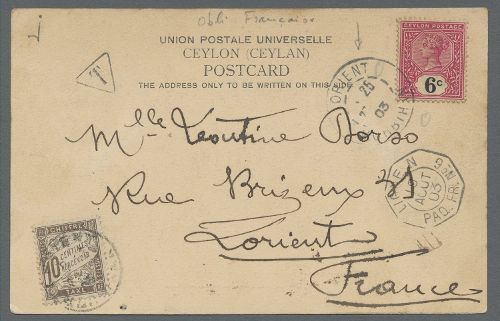 Obli Française
UNION POSTALE UNIVERSELLE
CEYLON (CEYLAN)
POSTCARD
THE ADDRESS ONLY TO BE WRITTEN ON THIS SIDE
T
6c
LORIENT
25
03
MORBIHAN
Mlle Léontine Borso
Rue Brizeux 21
Lorient
France
LIGNE N
AOUT
03
PAQ. FR.
CHIFFRE
10
CENTIMES
À PERCEVOIR
TAXE